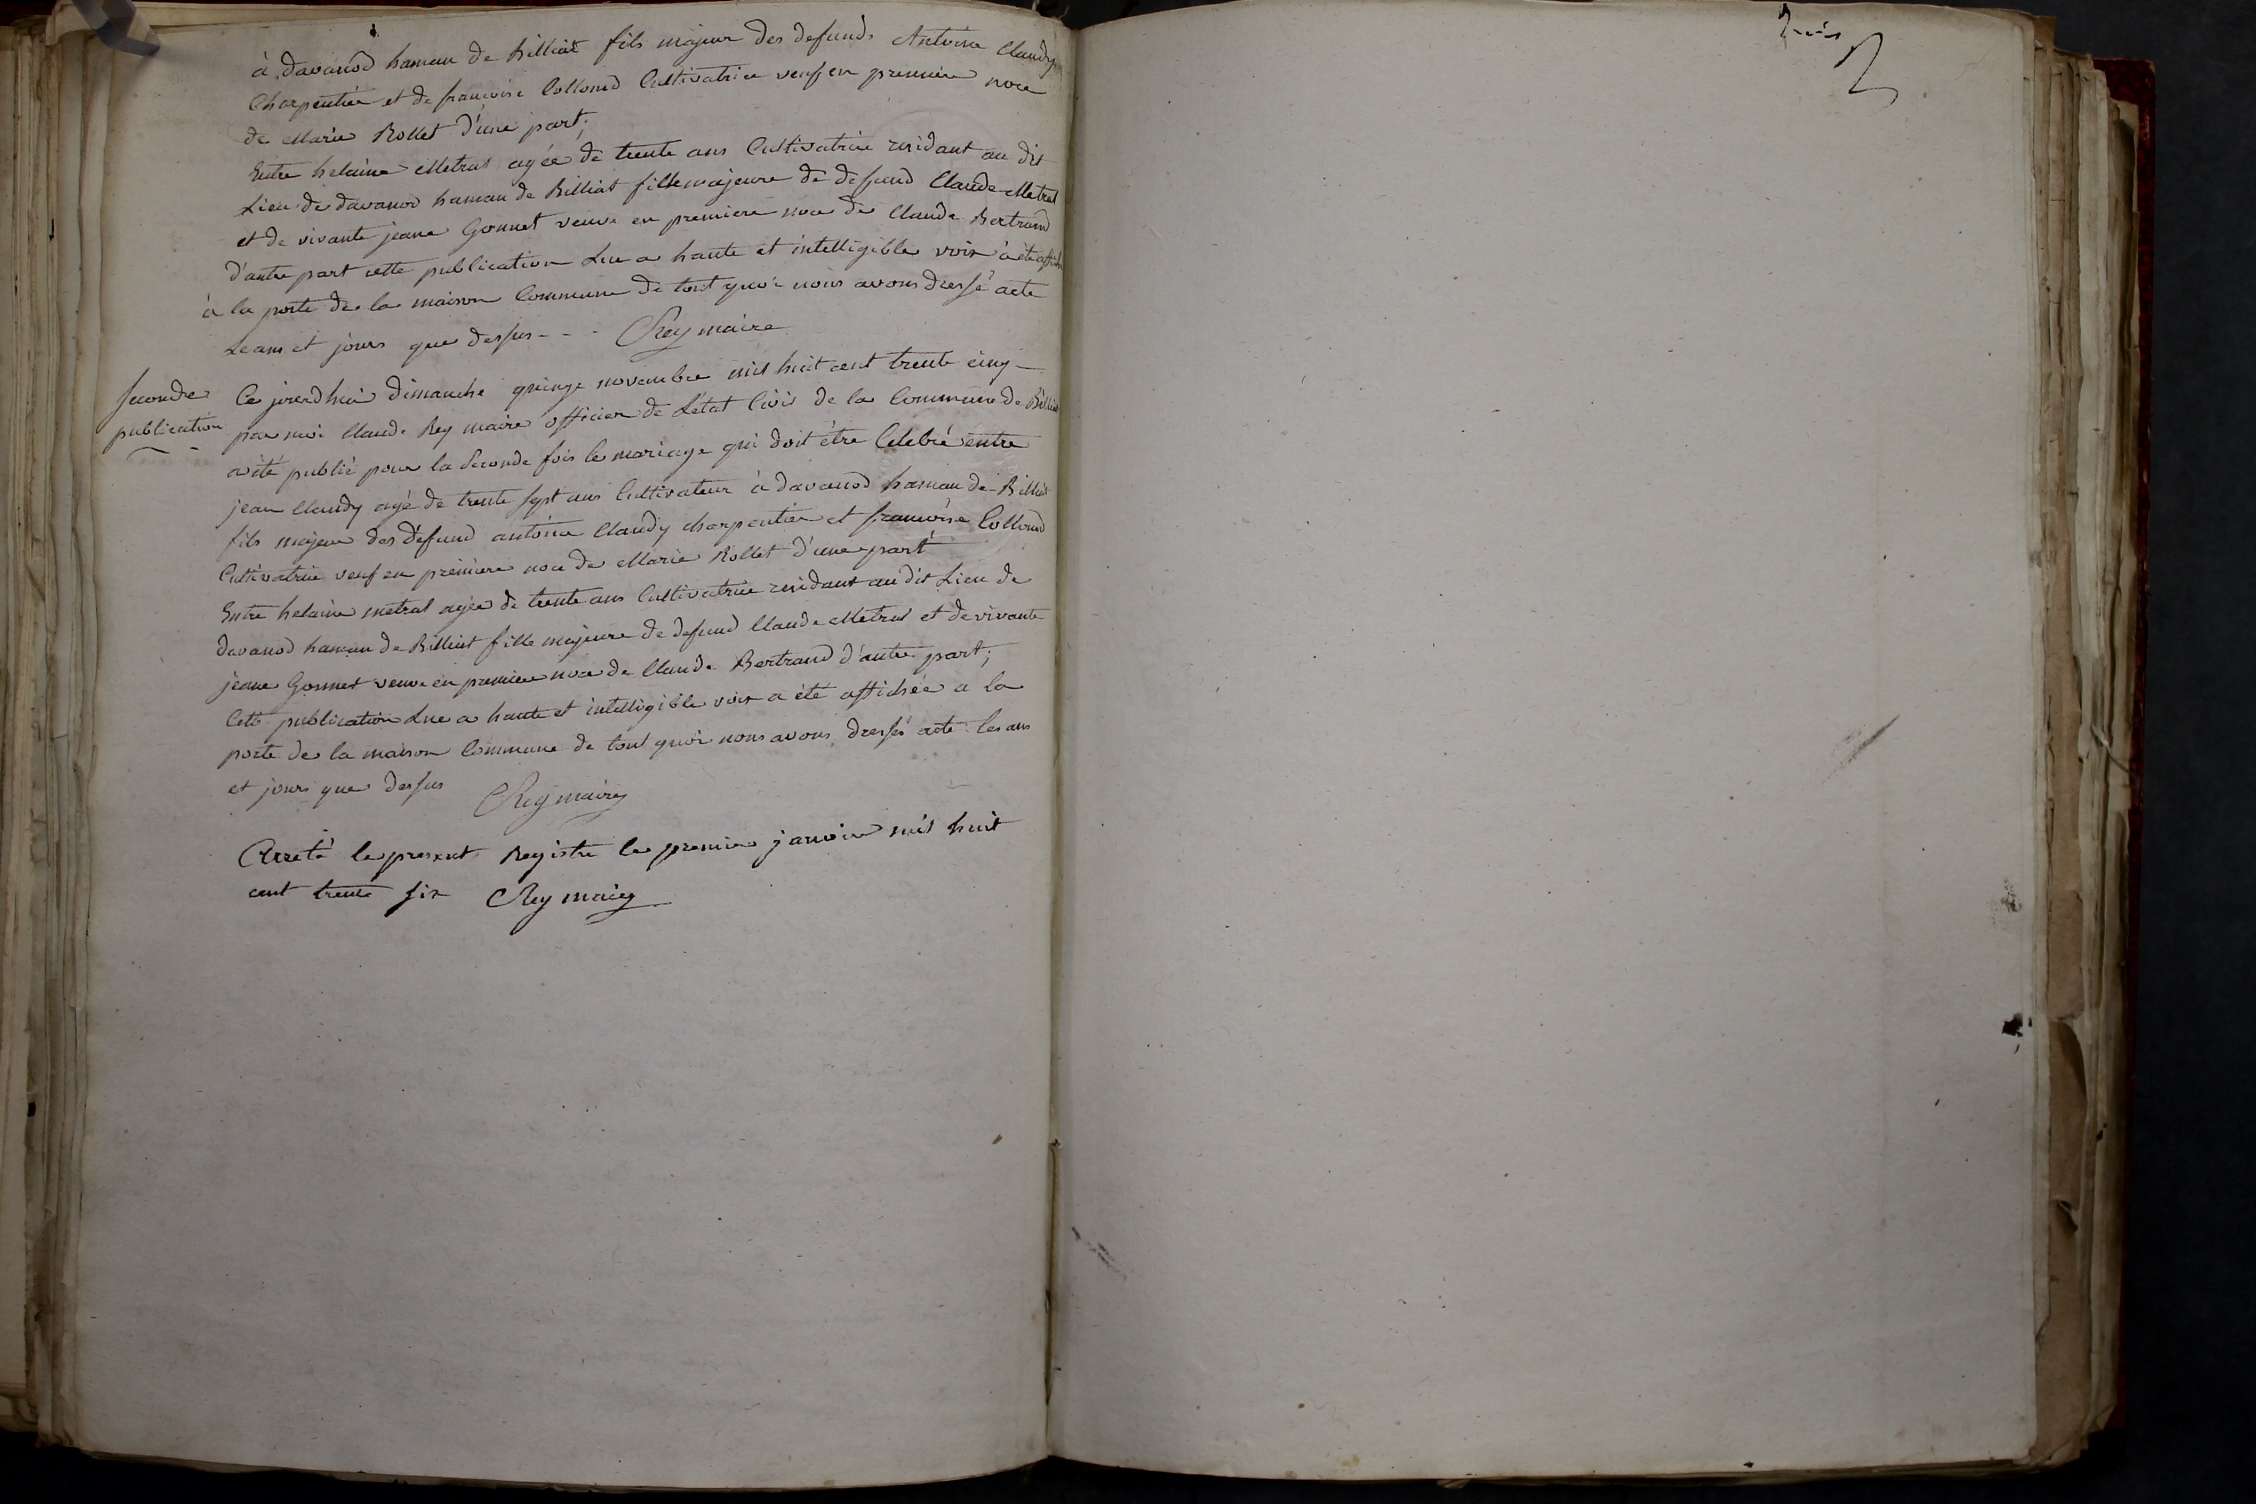 à davanod hamau de Billiat fils majeur des defunds Antoine Claudy
Charpentier et de francoise Collomd Cultivatrice veuf en premiere noce
de Marie Rollet d'une part;
Entre helaine Metral agée de trente ans Cultivatrice residant au dit
Lieu de davanod hamau de Billiat fille majeure de defund Claude Metral
et de vivante jeane Gonnet veuve en premiere noce de Claude Bertrand
d'autre part cette publication Lue a haute et intelligible voix à été affichée
à la porte de la maison Commune de tout quoi nous avons dressé acte
Le ans et jours que dessus - - - Rey maire
seconde
publication
Ce jourdhui dimanche quinze novembre mil huit cent trente cinq
par moi Claude Rey maire officier de L'état Civil de la Commune de Billiat
a été publié pour la Seconde fois le mariage qui doit être Celebré entre
jean Claudy agé de trente sept ans Cultivateur à davanod hamau de Billiat
fils majeur des défund antoine Claudy charpentier et francoise Collomd
Cultivatrice veuf en premiere noce de Marie Rollet d'une part
Entre helaine metral agée de trente ans Cultivatrice residant au dit Lieu de
davanod hamau de Billiat fille majeure de defund Claude Metral et de vivante
jeane Gonnet veuve en premiere noce de Claude Bertrand d'autre part;
Cette publication Lue a haute et intelligible voix a été affichée a la
porte de la maison Commune de tout quoi nous avons dressés acte les ans
et jours que dessus Rey maire
Arreté le present Registre le premier janvier mil huit
cent trente six Rey maire